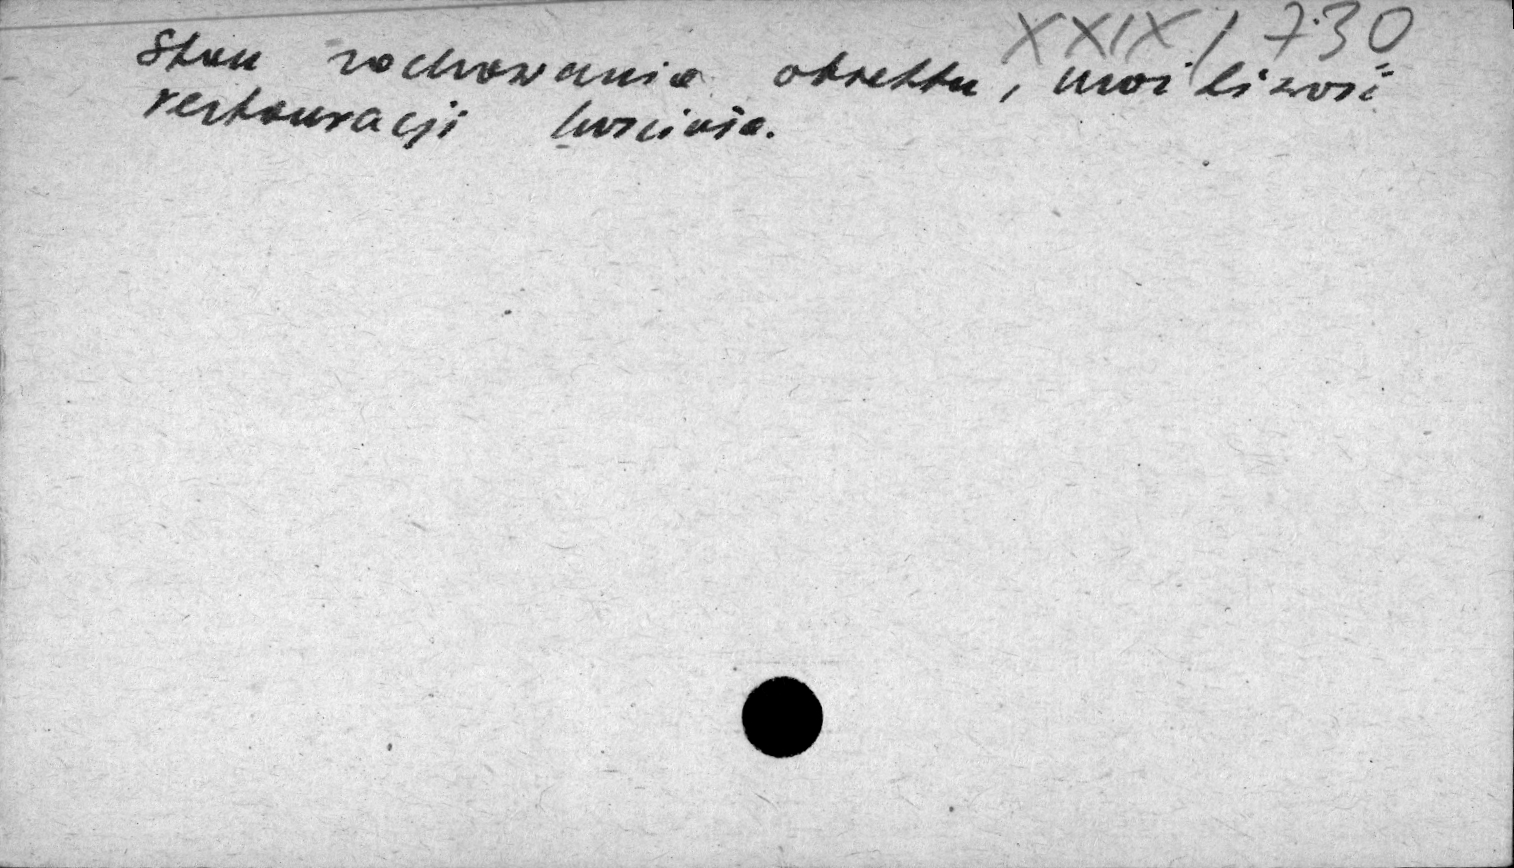 XXIX/730
Stan zachowania obiektu, możliwość
restauracji kościoła.